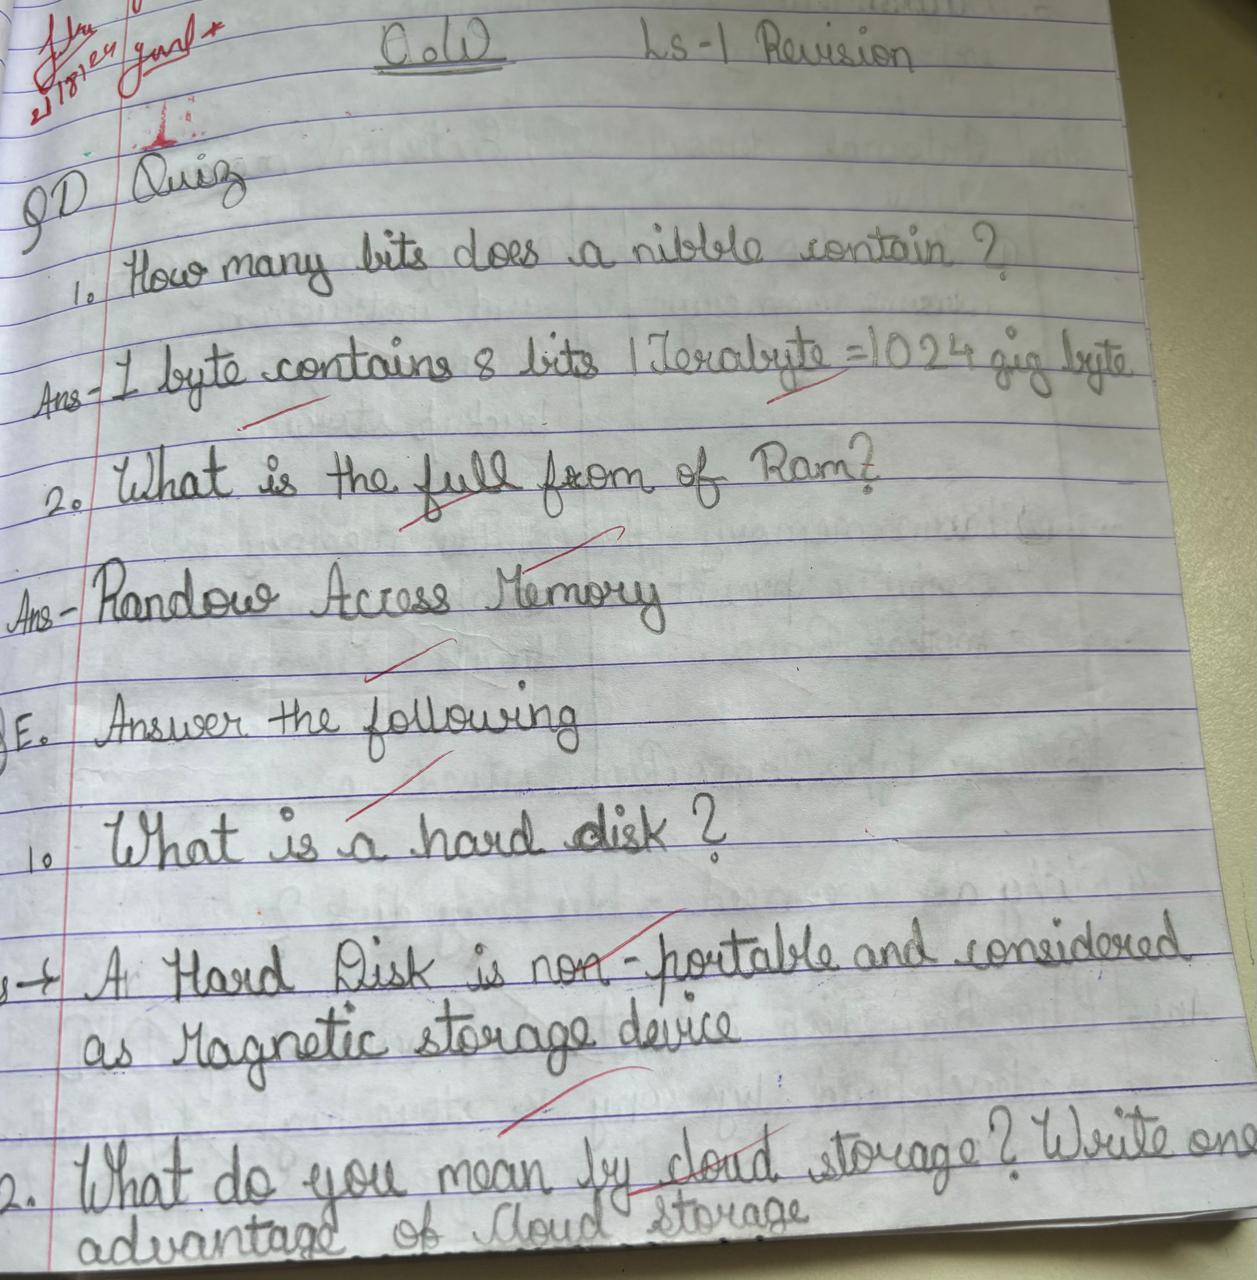 C.W Ls-1 Revision
QD Quiz
1. How many bits does a nibble contain ?
Ans- 1 byte contains 8 bits 1 Terabyte = 1024 gig byte
2. What is the full from of Ram?
Ans- Random Across Memory
E. Answer the following
1. What is a hard disk ?
A Hard Disk is non-portable and considered
as Magnetic storage device
2. What do you mean by cloud storage? Write one
advantage of Cloud storage